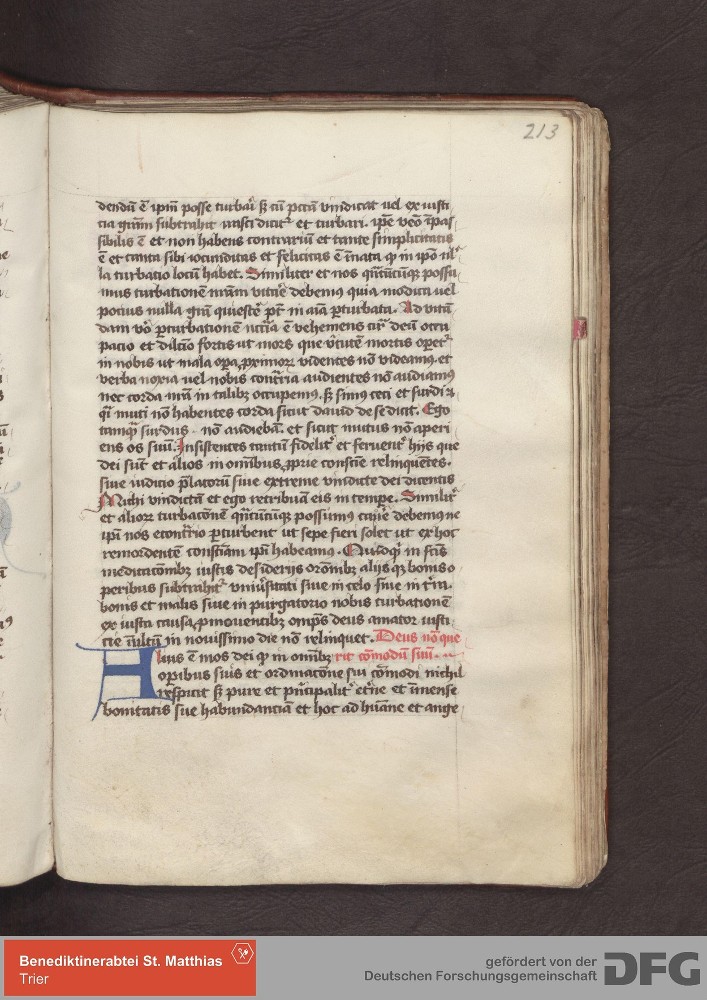 213
dendū ē ipm̄ posse turbari sꝫ cū pctā vindicat uel ex iusti
cia grām subtrahit nasci dicitᷣ et turbari. ipe veo īpas
sibilis ē et non habens contrariū et tante simplicitatis
ē et tanta sibi iocunditas et felicitas ē īnata ꝙ in ipō nl
la turbatio locū habet. Similiter et nos qn̄tūcūqꝫ possu
mus turbationē nrām vitare debemus quia modica uel
pocius nulla grā quiescere pt̄ in aīa ꝑturbata. Ad vitā
dam vo ꝑturbationē nccīa ē vehemens circa deū occu
pacio et dilcīo fortis ut mors que v̄tutē mortis operetᷣ
in nobis ut mala opa ꝓximoꝝ videntes nō videamꝰ. et
verba noxia uel nobis contrīa audientes nō audiamꝰ
nec corda nrā in talibꝫ occupemꝰ. sꝫ simꝰ ceci et surdi
qᷣ muti nō habentes corda sicut dauid de se dicit. Ego
tamqᷓ surdus nō audiebā. et sicut mutus nō aperi
ens os suū. Insistentes tantū fidelitᷣ et feruentᷣ hijs que
dei sūt et alios in omībus ꝓprie conscīe relinquētes.
siue iudicio platorū siue extreme vindicte dei dicentis
Michi vindictā et ego retribuā eis in tempe. Similitᷣ
et alioꝝ turbacōnē qn̄tūcūqꝫ possumꝰ cauere debemꝰ ne
ipi nos econtrīo ꝑturbent ut sepe fieri solet ut ex hoc
remordentē conscīam ipi habeamꝰ. Quicqᷓ in scīs
meditacōnibꝫ iustis desiderijs orōnibꝫ alijsqꝫ bonis o
peribus subtrahitᷣ vniuersitati siue in celo siue in trīa.
bonis et malis siue in purgatorio nobis turbationē
ex iusta causa ꝓmouentibꝫ omps deus amator iusti
cie īultū in nouissimo die nō relinquet. Deus nō que
Alius ē mos dei ꝙ in omībꝫ rit cōmodū suū.
opibus suis et ordinacōne sui cōmodi nichil
respicit sꝫ pure et pn̄cipalitᷣ etᷣne et īmense
bonitatis sue habundanciā et hoc ad hūane et ange
Benediktinerabtei St. Matthias
Trier
gefördert von der
Deutschen Forschungsgemeinschaft
DFG